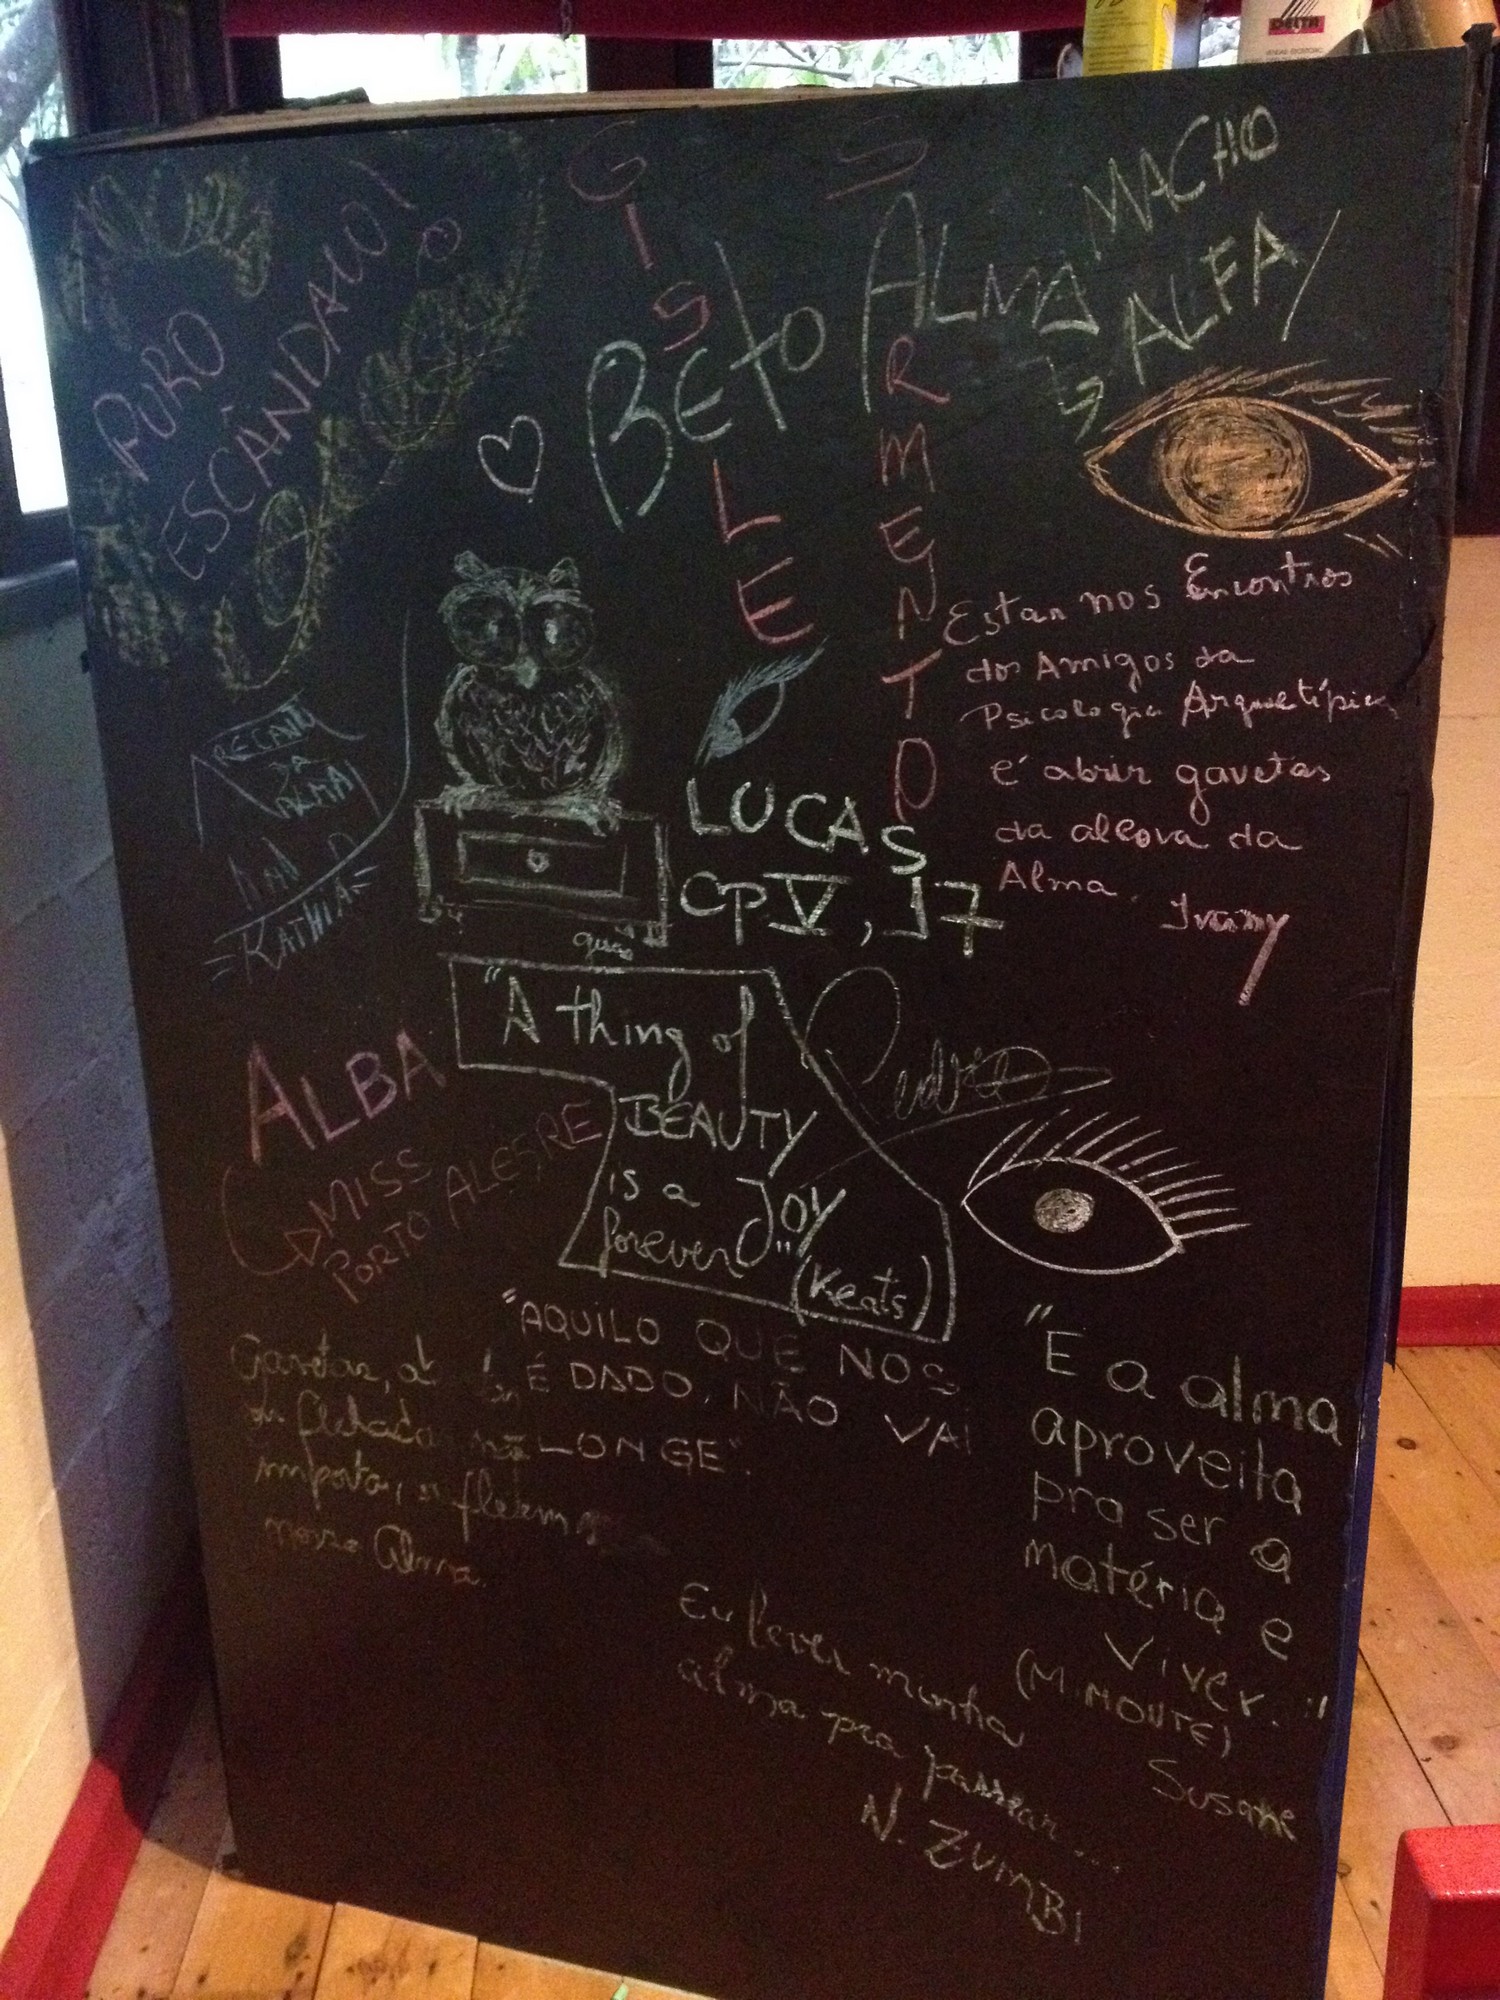 DELTA
PURO
ESCÂNDALO!
GISELE
SARMENTO
BETO ALMA
MACHO
ALFA
Estar nos Encontros
dos Amigos da
Psicologia Arquetípica
é abrir gavetas
da alcova da
Alma.
RECANTO
DA
ALMA
KATHIA
LUCAS
CPV, 17
"A thing of
BEAUTY
is a Joy
forever"
(Keats)
Pedro
ALBA
MISS
PORTO ALEGRE
"AQUILO QUE NOS
É DADO, NÃO VAI
LONGE".
Gavetas,
importa,
nossa Alma.
"E a alma
aproveita
pra ser a
matéria e
viver..."
(M. MONTE)
Susane
Eu levei minha
alma pra passear...
N. ZUMBI